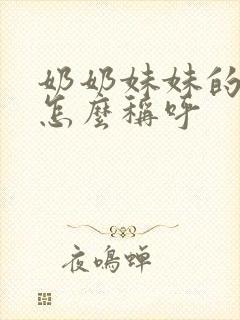 奶奶妹妹的
怎麼稱呼
夜鳴蟬